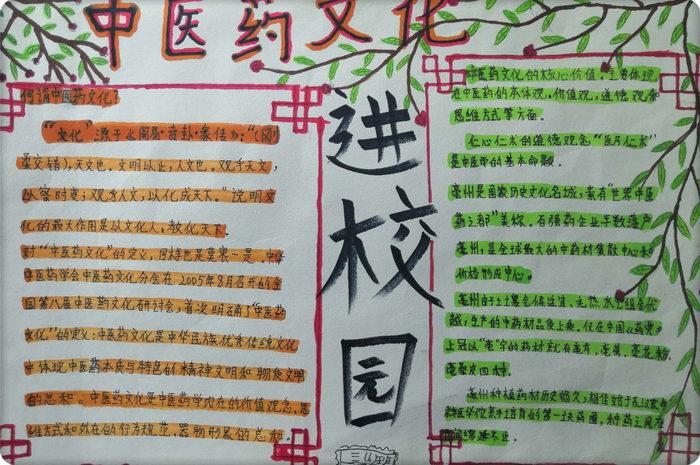 中医药文化
进校园
何谓中医药文化?
"文化"源于《周易·贲卦·彖传》:"(刚
柔交错),天文也。文明以止,人文也。观乎天文,
以察时变;观乎人文,以化成天下。"说明文
化的最大作用是以文化人、教化天下。
对"中医药文化"的定义,同样也是莫衷一是。中华
中医药学会中医药文化分会在2005年8月召开的全
国第八届中医药文化研讨会,首次明确了"中医药
文化"的定义:中医药文化是中华民族优秀传统文化
中体现中医药本质与特色的精神文明和物质文明
的总和。中医药文化是中医药学内在的价值观念、思
维方式和外在的行为规范、器物形象的总和。
中医药文化的核心价值,主要体现
在中医药的本体观,价值观,道德观和
思维方式等方面。
仁心仁术的道德观念"医乃仁术"
是中医学的基本命题。
亳州是国家历史文化名城,素有"世界中医
药之都"美称。百强药企业半数落户
亳州,是全球最大的中药材集散中心和
价格形成中心。
亳州由于土壤气候适宜,光热水
越,生产的中药材品质上乘,仅在中国《药典》
上冠以"亳"字的药材就有亳芍、亳菊、亳
亳桑皮四种。
亳州种植药材历史悠久,相传始于东汉末
神医华佗亲手培育的第一块药圃,种药之风在
绵延不止。